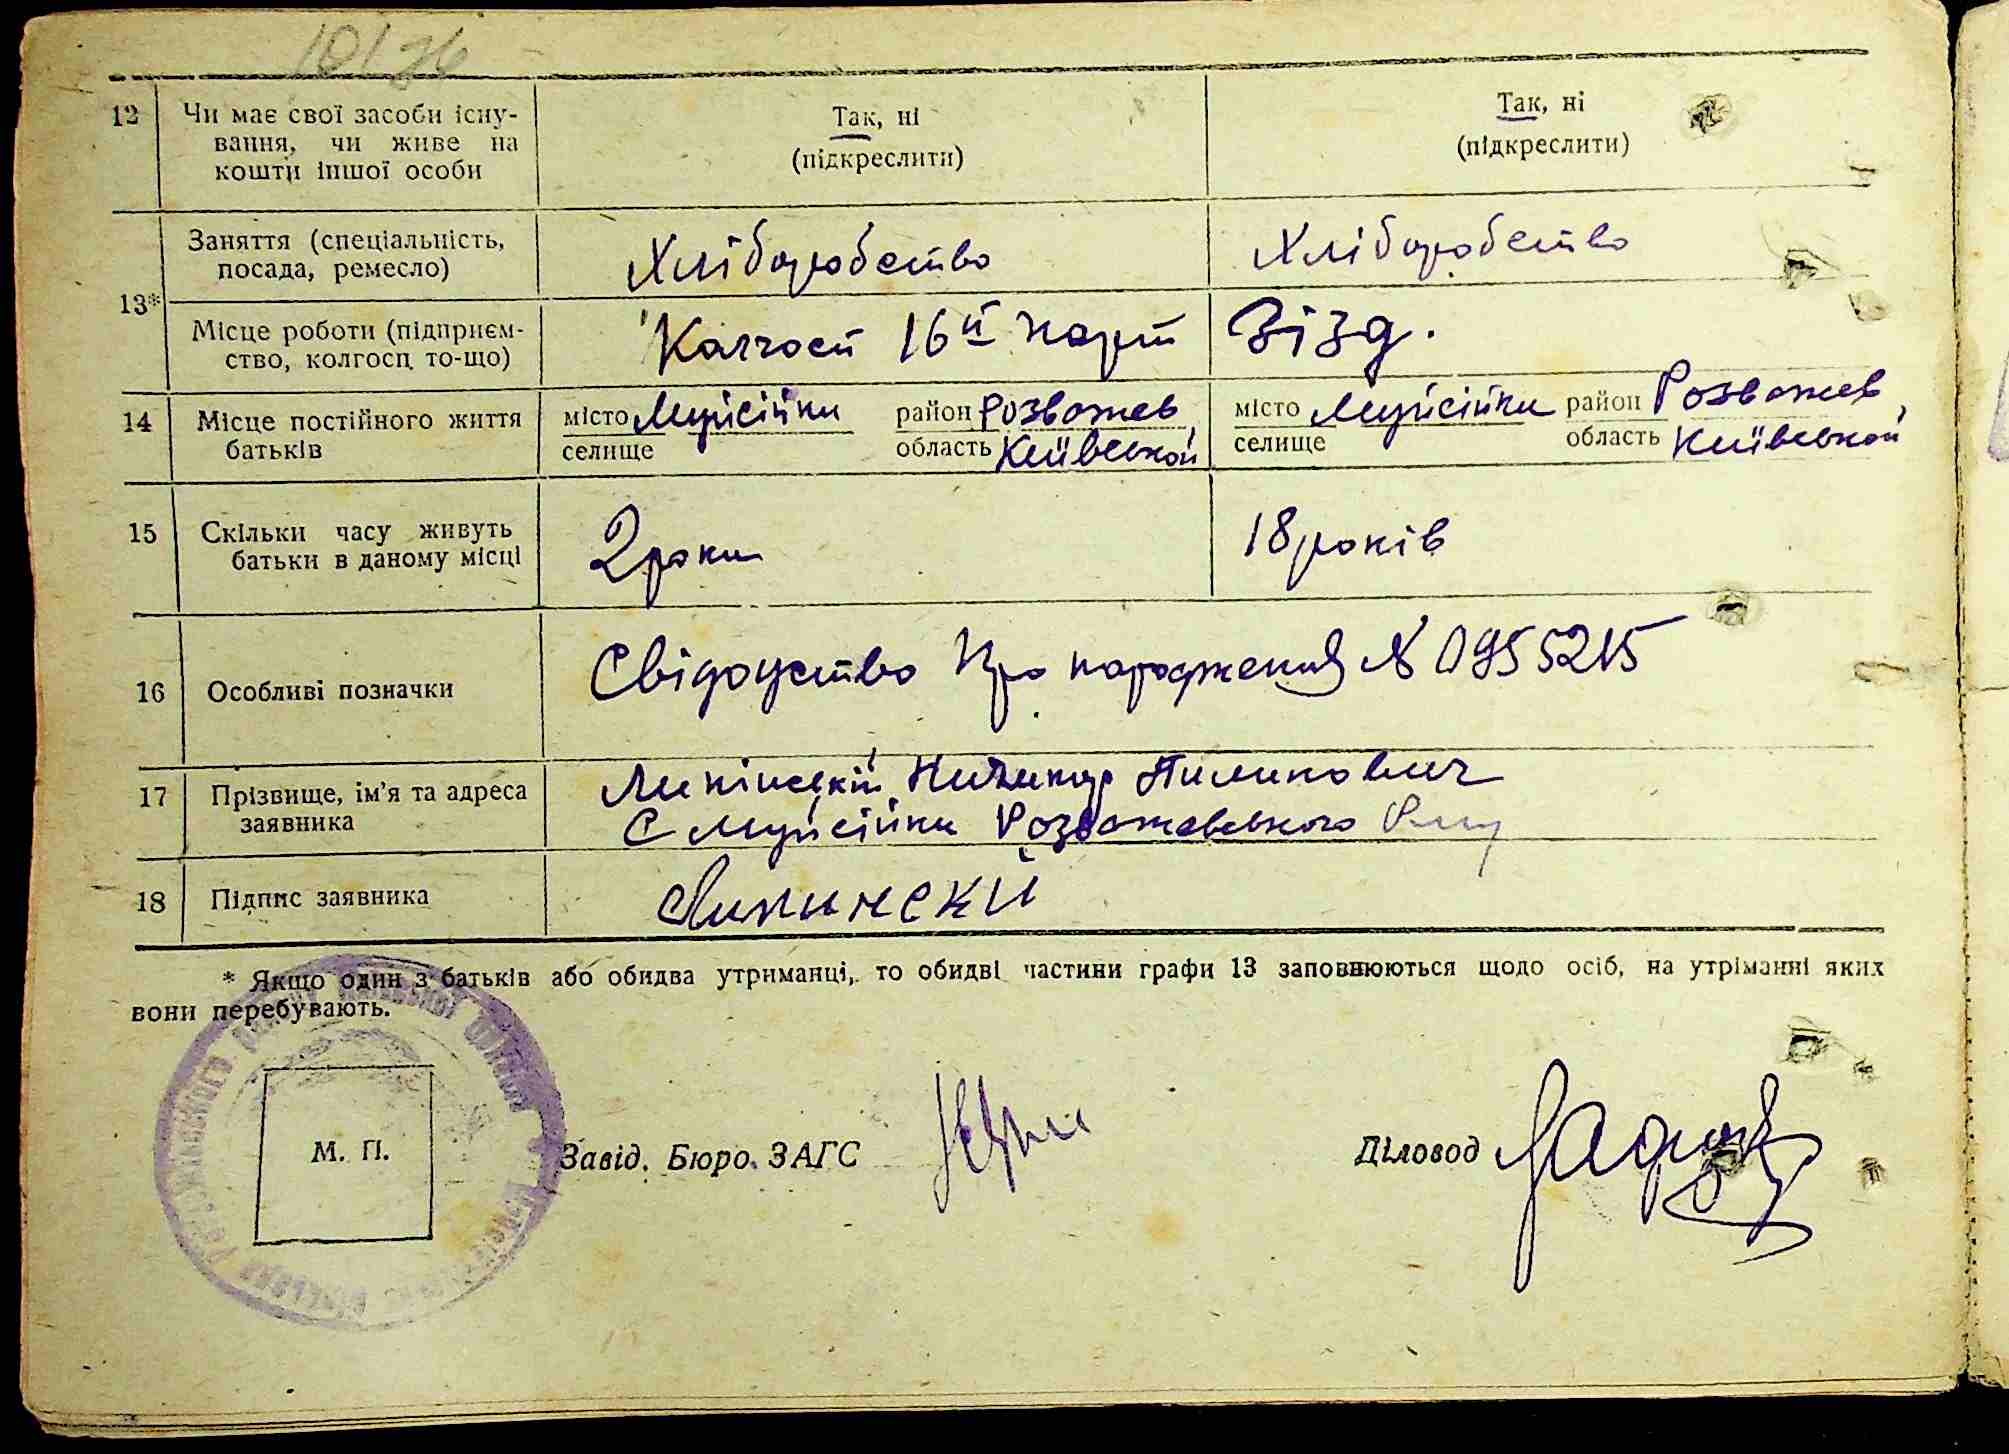 10126
12 Чи має свої засоби існу-
вання, чи живе на
кошти іншої особи
Так, ні
(підкреслити)
Так, ні
(підкреслити)
13*
Заняття (спеціальність,
посада, ремесло)
Хліборобство
Хліборобство
Місце роботи (підприєм-
ство, колгосп, то-що)
Колгосп 16й парт
Зізд.
14 Місце постійного життя
батьків
місто Мусійки район Розважев
селище область Київської
місто Мусійки район Розважев,
селище область Київської
15 Скільки часу живуть
батьки в даному місці
2 роки
18 років
16 Особливі позначки
Свідоцтво про народження № 0955215
17 Прізвище, ім'я та адреса
заявника
Никипор Пилипович
С Мусійки Розважевського
18 Підпис заявника
* Якщо один з батьків або обидва утриманці, то обидві частини графи 13 заповнюються щодо осіб, на утріманні яких
вони перебувають.
М. П.
Завід. Бюро. ЗАГС
Діловод